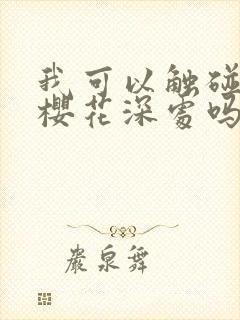 我可以触碰
樱花深处吗
岩泉舞